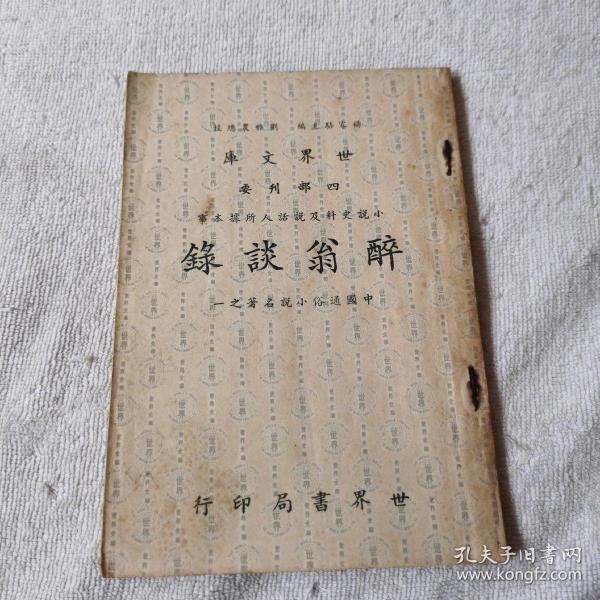 楊家駱主編　劉雅農總校
世界文庫
四部刊要
小說史料及說話人所據本事
醉翁談錄
中國通俗小說名著之一
世界書局印行
世界
孔夫子旧书网
www.kongfz.com